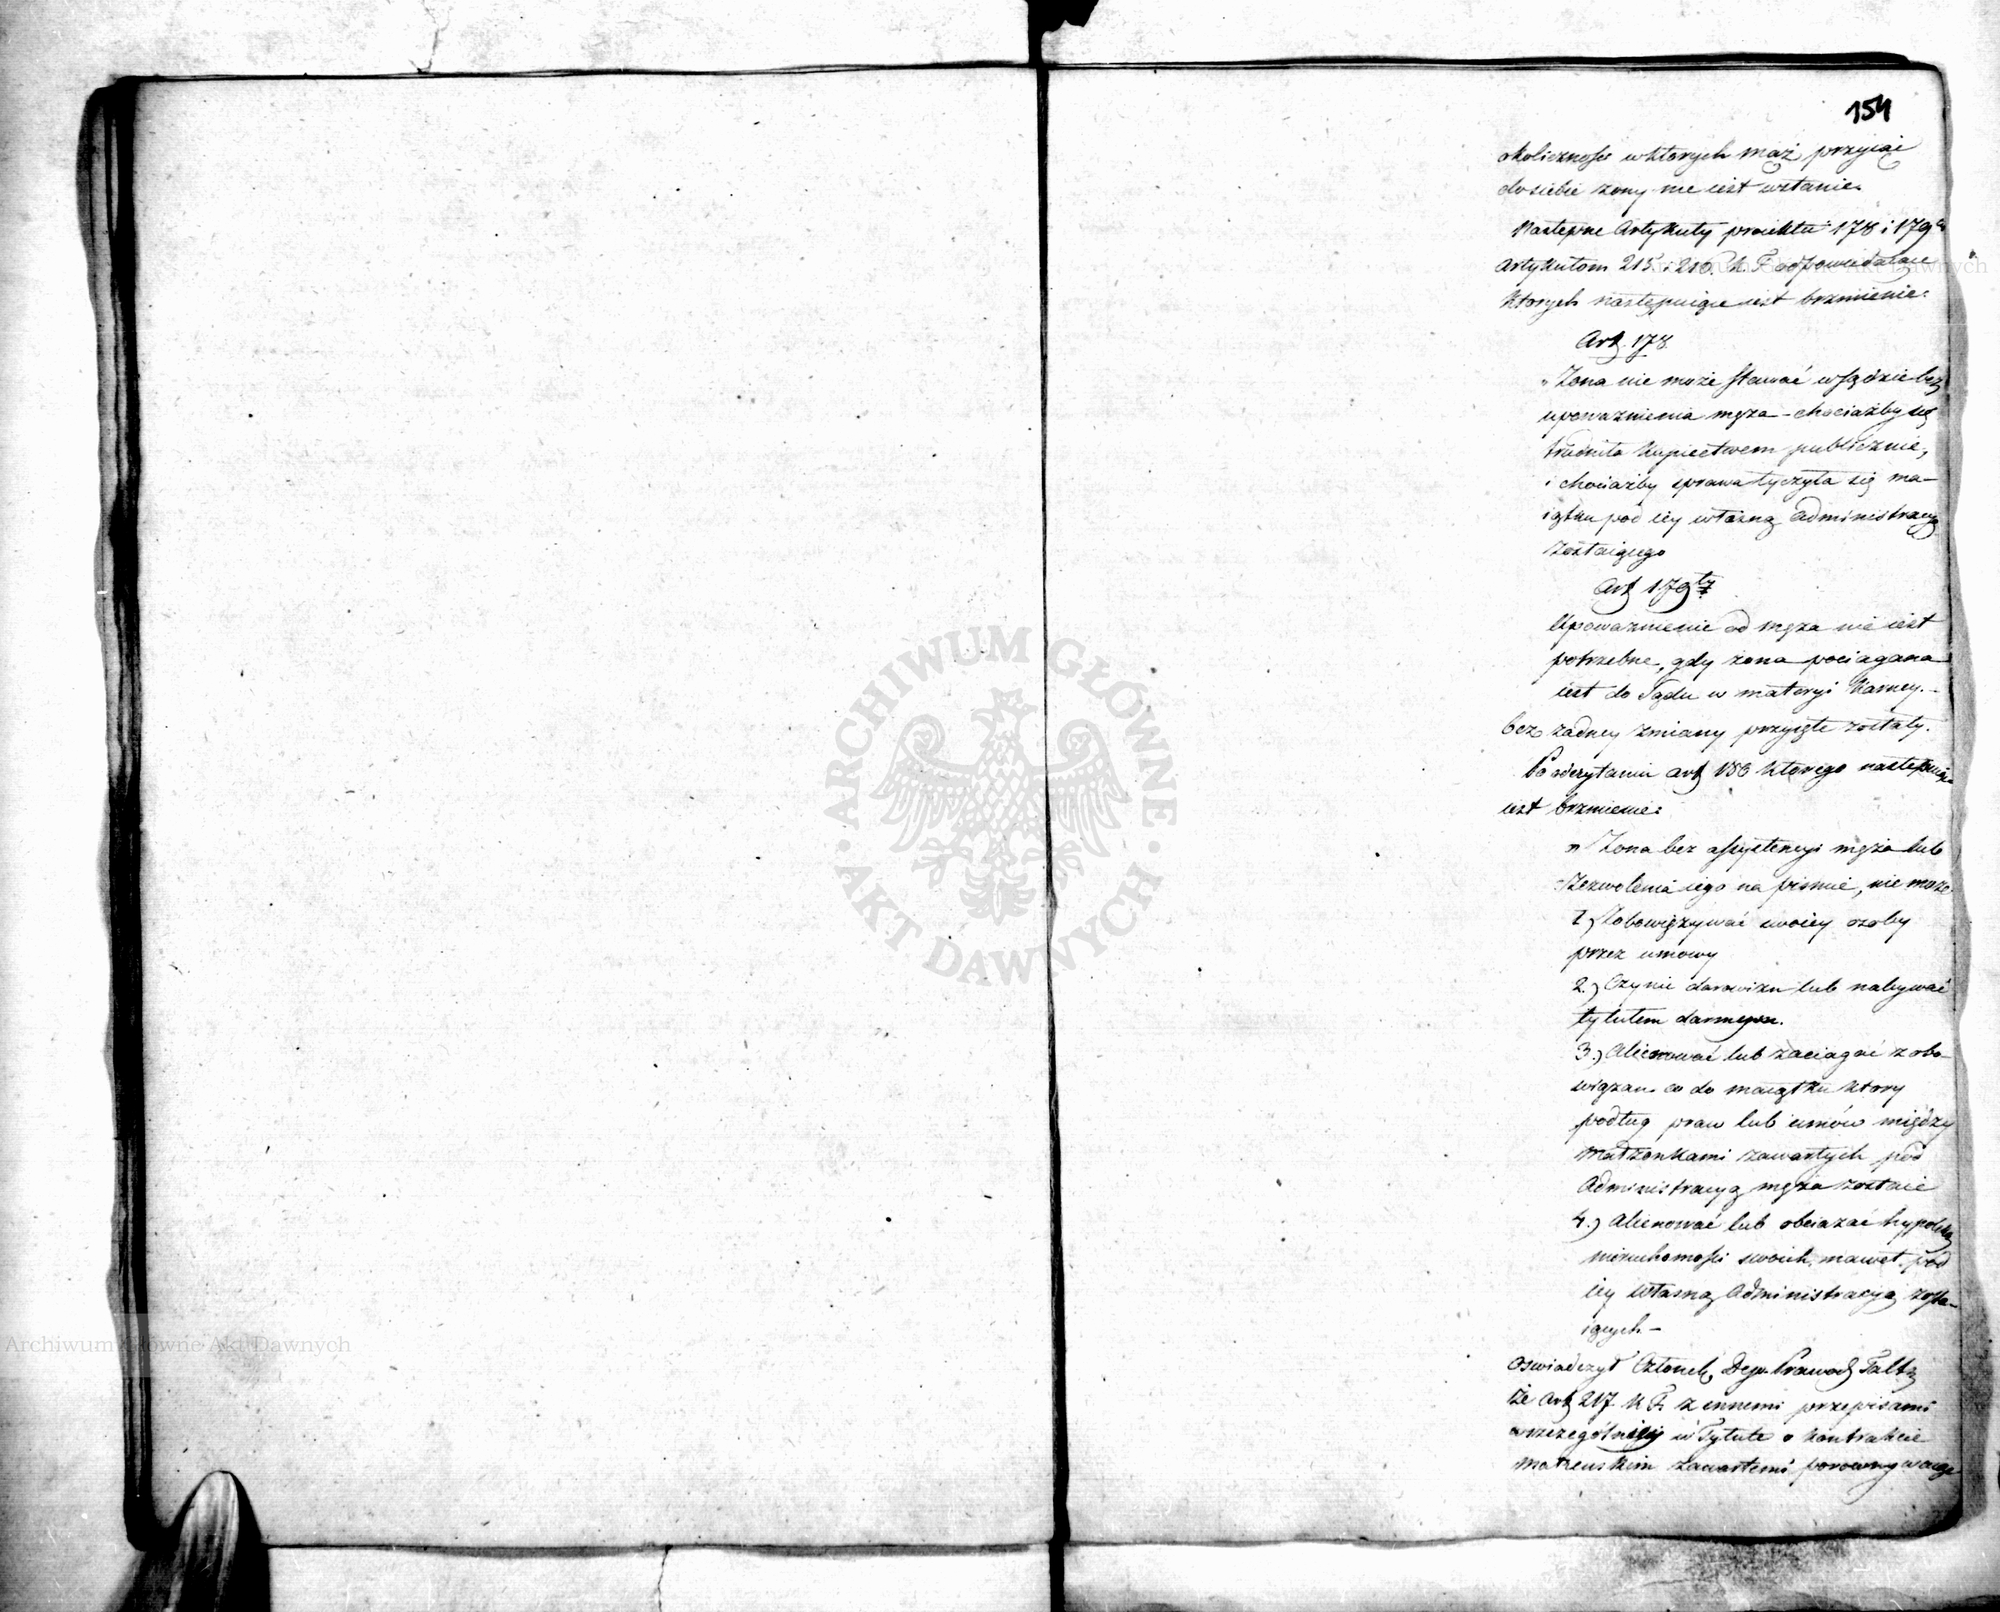 154
okoliczności w których mąż przyiąć
do siebie żony nie iest wstanie.
Następne Artykuły proiektu 178 i 179
Artykułom 215 i 216. K. F. odpowiadaiące
których następuiące iest brzmienie:
Art. 178.
„Żona nie może stawać w sądzie bez
upoważnienia męża - chociażby się
trudniła kupiectwem publicznie,
i chociażby sprawa tyczyła się ma-
iątku pod iey własną Administracyą
zostaiącego
Art 179ty
Upoważnienie od męża nie iest
potrzebne, gdy żona pociągana
iest do Sądu w materyi karney.-
bez żadney zmiany przyięte zostały.
Po odczytaniu art 180 którego następuiące
iest brzmienie:
„ Żona bez assystencyi męża lub
zezwolenia iego na piśmie, nie może
1.) Zobowiązywać swoiey osoby
przez umowy
2.) Czynić darowizn lub nabywać
tytułem darmym.
3.) Alienować lub zaciągać zobo-
wiązań co do maiątku który
podług praw lub umów między
małżonkami zawartych pod
Administracyą męża zostaie
4.) Alienować lub obciążać hypoteką
nieruchomości swoich, nawet pod
iey własną Administracyą zosta-
iących. -
Oświadczył Członek Dep. Prawod.
że Art 217 K F. z innemi przepisami
w szczególności w Tytule o kontrakcie
małżeńskim zawartemi porównywaiąc
ARCHIWUM GŁÓWNE
AKT DAWNYCH
Archiwum Główne Akt Dawnych
Archiwum Główne Akt Dawnych